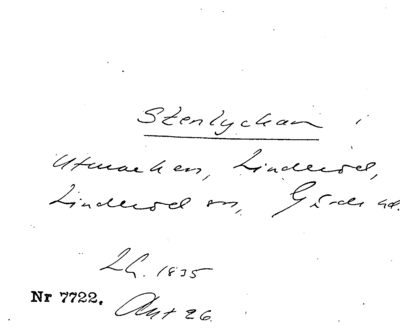 Stenlyckan i
Utmarken, Linderöd,
Linderöd sn, Gärds hd.
Lh. 1835
Nr 7722. Akt 26